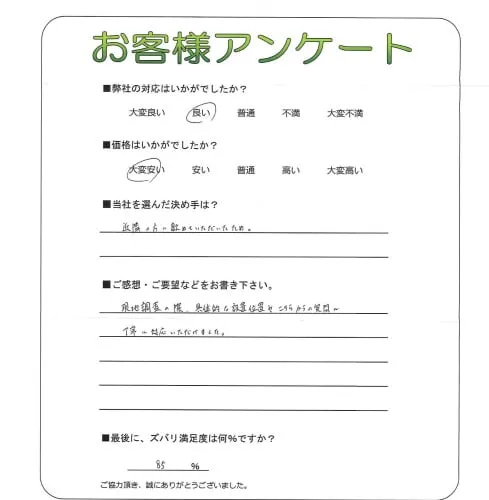 お客様アンケート
■弊社の対応はいかがでしたか？
大変良い 良い 普通 不満 大変不満
■価格はいかがでしたか？
大変安い 安い 普通 高い 大変高い
■当社を選んだ決め手は？
近隣の方に勧めていただいたため。
■ご感想・ご要望などをお書き下さい。
現地調査の際、具体的な設置位置やこちらからの質問に
丁寧に対応いただけました。
■最後に、ズバリ満足度は何％ですか？
85 ％
ご協力頂き、誠にありがとうございました。